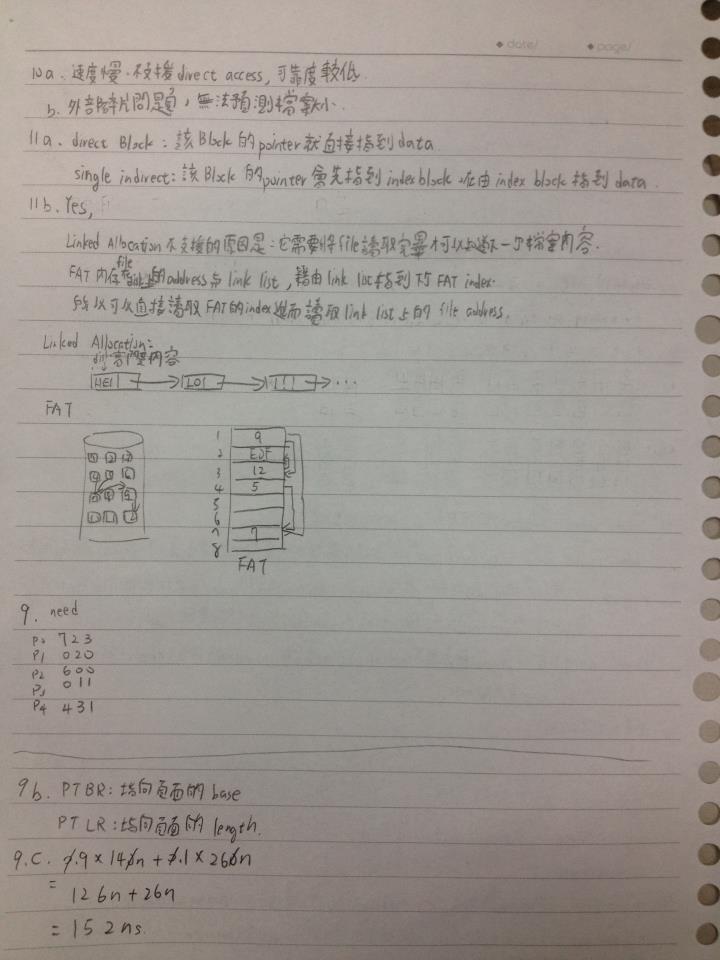 date/ page/
10a. 速度慢.不支援direct access,可靠度較低.
b. 外部碎片問題,無法預測檔案大小.
11a. direct Block:該Block的pointer就直接指到data
single indirect:該Block的pointer會先指到index block.在由index block指到data.
11b. Yes,
Linked Allocation不支援的原因是:它需要將file讀取完畢才可以知道下一個檔案內容.
file
FAT內存 的address与link list,藉由link list指到下 FAT index.
所以可以直接讀取FAT的index進而讀取link list上的file address.
Linked Allocation:
內容
HEl → lO → !!! → ...
FAT
1 9
2 EOF
3 12
4 5
5
6
7 7
8
FAT
9. need
P0 7 2 3
P1 0 2 0
P2 6 0 0
P3 0 1 1
P4 4 3 1
9b. PTBR:指向頁面的base
PTLR:指向頁面的length.
9.C. 0.9×140n+0.1×260n
=
126n+26n
=152ns.